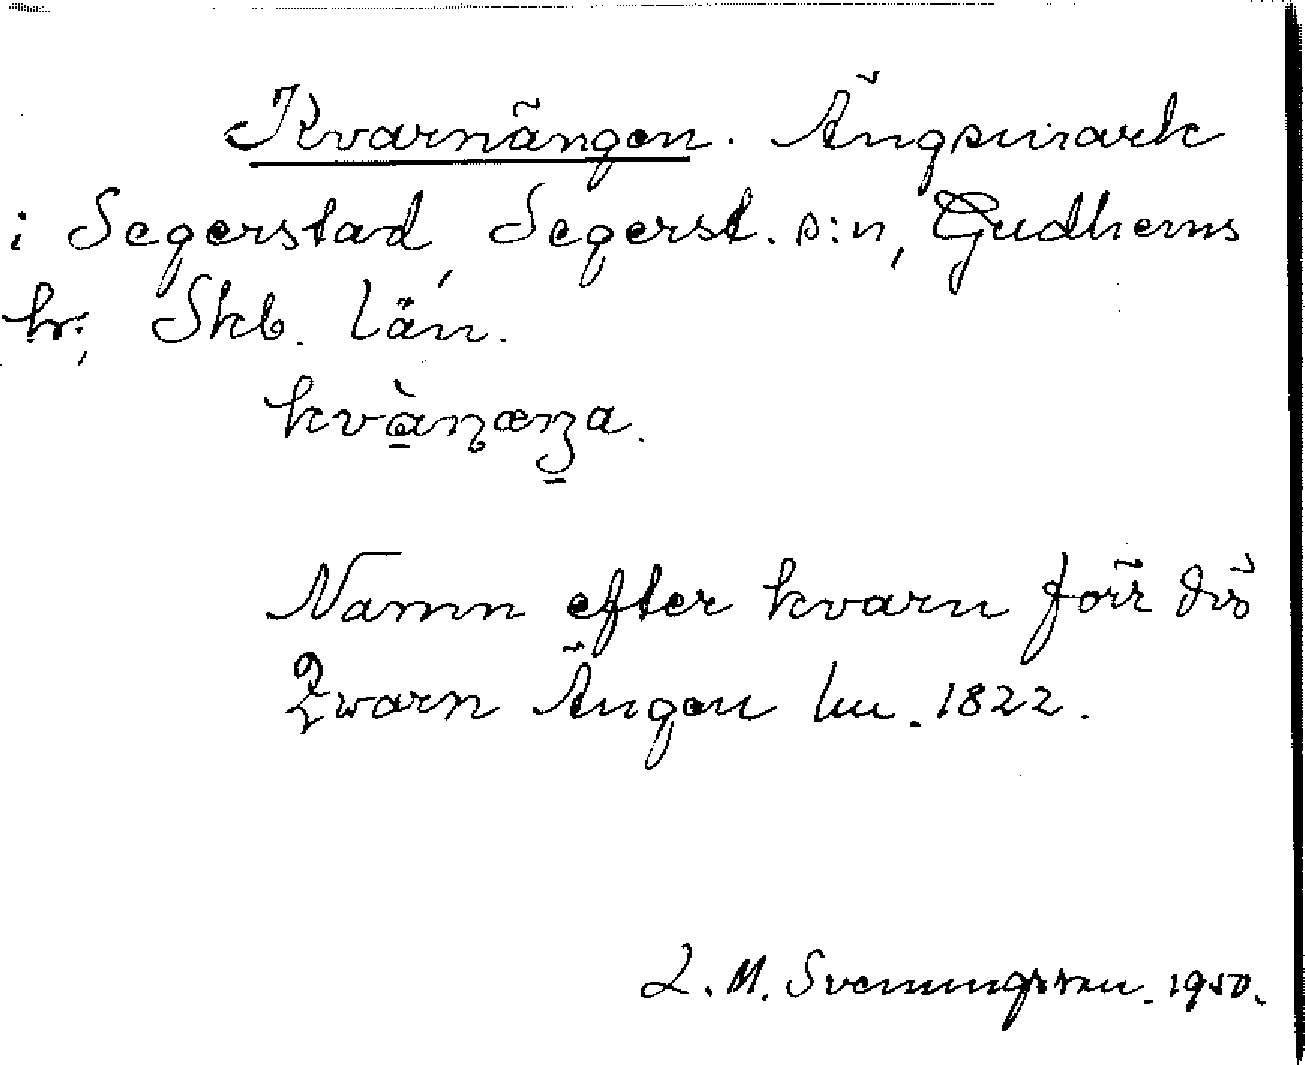 Kvarnängen. Ängsmark
i Segerstad, Segerst. s:n, Gudhems
hr., Skb. län.
kvàṇæŋa.
Namn efter kvarn förr där
Qwarn Ängen lm. 1822.
L. M. Svenungsson. 1950.